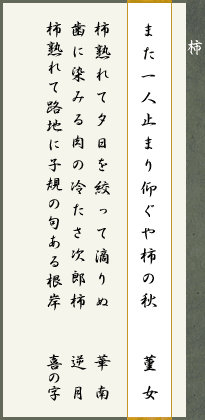 柿
また一人止まり仰ぐや柿の秋 菫女
柿熟れて夕日を絞って滴りぬ 華南
歯に染みる肉の冷たさ次郎柿 逆月
柿熟れて路地に子規の句ある根岸 喜の字